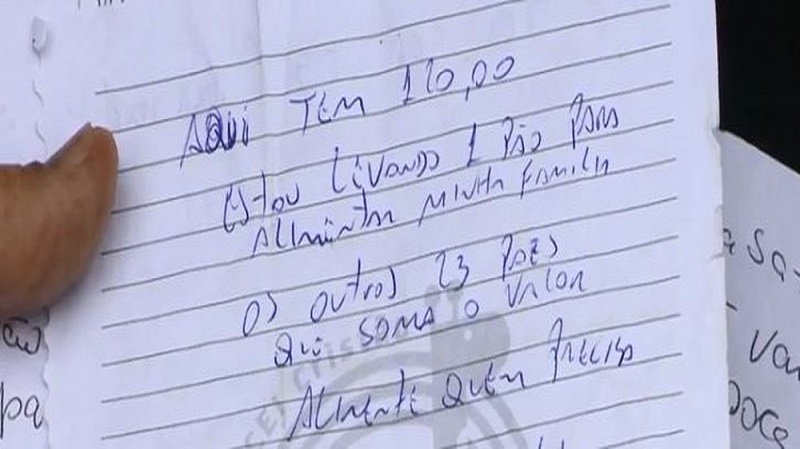 AQUI TEM 120,00
ESTOU LEVANDO 1 PÃO PARA
ALIMENTAR MINHA FAMILIA
OS OUTROS 23 PÃES
QUE SOMA O VALOR
ALIMENTE QUEM PRECISA
pa
sa-
Doce